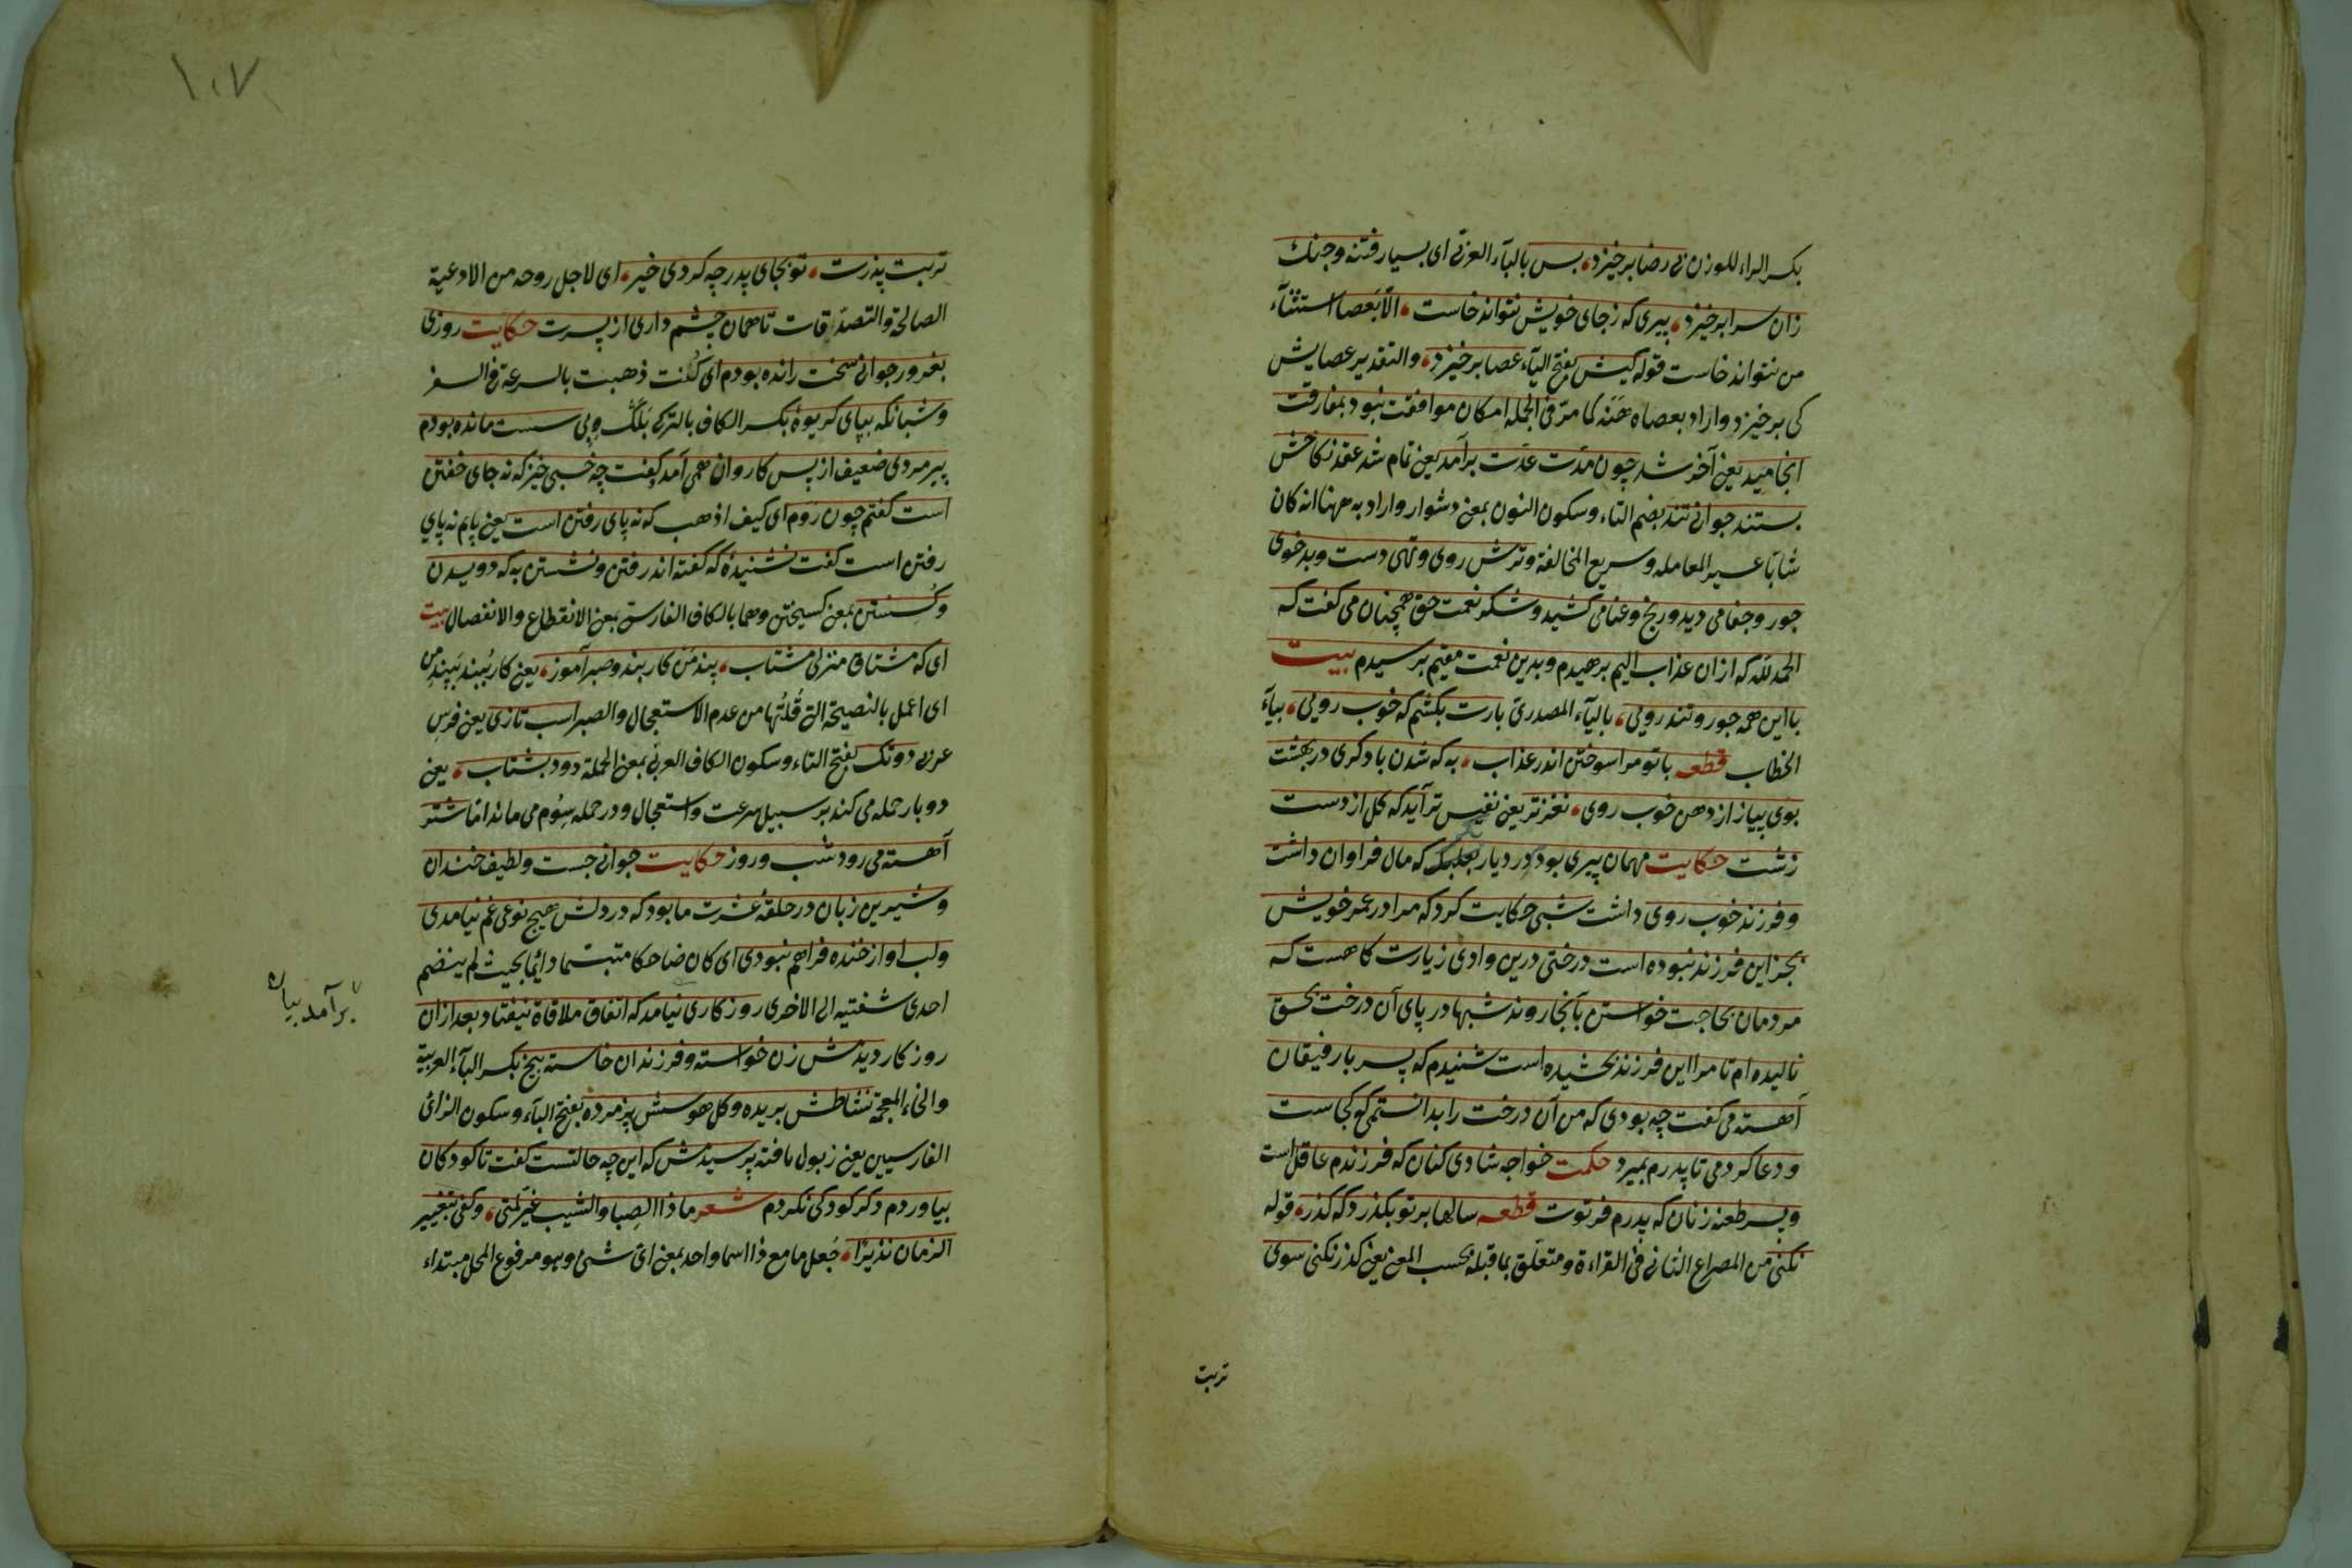 بكسر الراء للوزن بى رضا برخيزد، بس بالباء العربى اى بسيار فتنه وجنك
زان سرا برخيزد، پيرى كه زجاى خويش نتواند خاست، الا بعصا استثناء
من نتواند خاست قوله كيش بفتح الياء عصا برخيزد، والتقدير عصايش
كى برخيزد واراد بعصاه هنه كما مرّ فى الجمله امكان موافقت نبود بمفارقت
انجاميد يعنى آخر شد چون مدت عدت برآمد يعنى تمام شد عقد نكاحش
بستند جوانى تند بضم التاء وسكون النون بمعنى دشوار واراد به مهنا انه كان
شابا عسير المعامله وسريع المخالفة وترش روى وتهى دست وبدخوى
جور وجفا مى ديد ورنج وعنا مى كشيد وشكر نعمت حق همچنان مى كفت كه
الحمد لله كه ازان عذاب اليم برهيدم وبدين نعمت مقيم برسيدم بيت
با اين همه جور وتند رويى، بالياء المصدرى بارت بكشم كه خوب رويى، بياء
الخطاب قطعه باتو مرا سوختن اندر عذاب، به كه شدن با دكرى در بهشت
بوى پياز از دهن خوب روى، نغزتر يعنى نفيس تر آيد كه كل از دست
زشت حكايت مهمان پيرى بودم در ديار بكر كه مال فراوان داشت
وفرزند خوب روى داشت شبى حكايت كرد كه مرا در عمر خويش
بجز اين فرزند نبوده است درختى درين وادى زيارت كاهست كه
مردمان بحاجت خواستن بآنجا روند شبها در پاى آن درخت بحق
ناليده ام تا مرا اين فرزند بخشيده است شنيدم كه پسر با رفيقان
آهسته مى كفت چه بودى كه من آن درخت را بدانستمى كو كجاست
ودعا كردمى تا پدرم بميرد حكمت خواجه شادى كنان كه فرزندم عاقل است
وپسر طعنه زنان كه پدرم فرتوت قطعه سالها بر تو بكذرد كه كذر، قوله
نكنى من المصراع الثانى فى القراءة ومتعلق بما قبله بحسب المعنى يعنى كذر نكنى سوى
تربت
١٠٧
تربت پدرت، تو بجاى پدر چه كردى خير، اى لاجل روحه من الادعية
الصالحة والتصدقات تا همان چشم دارى از پسرت حكايت روزى
بغرور جوانى سخت رانده بودم اى كنت ذهبت بالسرعة فى السفر
وشبانكه بپاى كريوه بكسر الكاف بالتركى بلك وبى سست مانده بودم
پير مردى ضعيف از پس كاروان همى آمد كفت چه خسبى خيز كه نه جاى خفتن
است كفتم چون روم اى كيف اذهب كه نه پاى رفتن است يعنى پايم نه پاى
رفتن است كفت نشنيدهٔ كه كفته اند رفتن ونشستن به كه دويدن
وكسستن بمعنى كسيختن وهما بالكاف الفارسى بمعنى الانقطاع والانفصال بيت
اى كه مشتاق منزلى مشتاب، پند من كار بند وصبر آموز، يعنى كار ببند ببند من
اى اعمل بالنصيحة التى قلتها من عدم الاستعجال والصبر اسب تازى يعنى فرس
عربى دو تك بفتح التاء وسكون الكاف العربى بمعنى الحملة دود بشتاب، يعنى
دو بار حمله مى كند بر سبيل سرعت واستعجال ودر حمله سوم مى ماند اما شتر
آهسته مى رود شب وروز حكايت جوانى جست ولطيف خندان
وشيرين زبان در حلقهٔ عشرت ما بود كه در دلش هيچ نوعى غم نيامدى
ولب او از خنده فراهم نبودى اى كان ضاحكا متبسما دائما بحيث لم ينضم
احدى شفتيه الى الاخرى روزكارى نيامد كه اتفاق ملاقاة نيفتاد بعد ازان
برآمد بيان
روزكار ديدمش زن خواسته وفرزندان خاسته بيخ بكسر الباء العربية
والخاء المعجمة نشاطش بريده وكل هوسش پژمرده بفتح الباء وسكون الزائ
الفارسيين يعنى زبول يافته پرسيدمش كه اين چه حالتست كفت تا كودكان
بياوردم دكر كودكى نكردم شعر ماذا الصبا والشيب غير لمتى، وكفى بتغيير
الزمان نذيرا، جعل ما مع ذا اسما واحدا بمعنى اى شئ وهو مرفوع المحل مبتداء